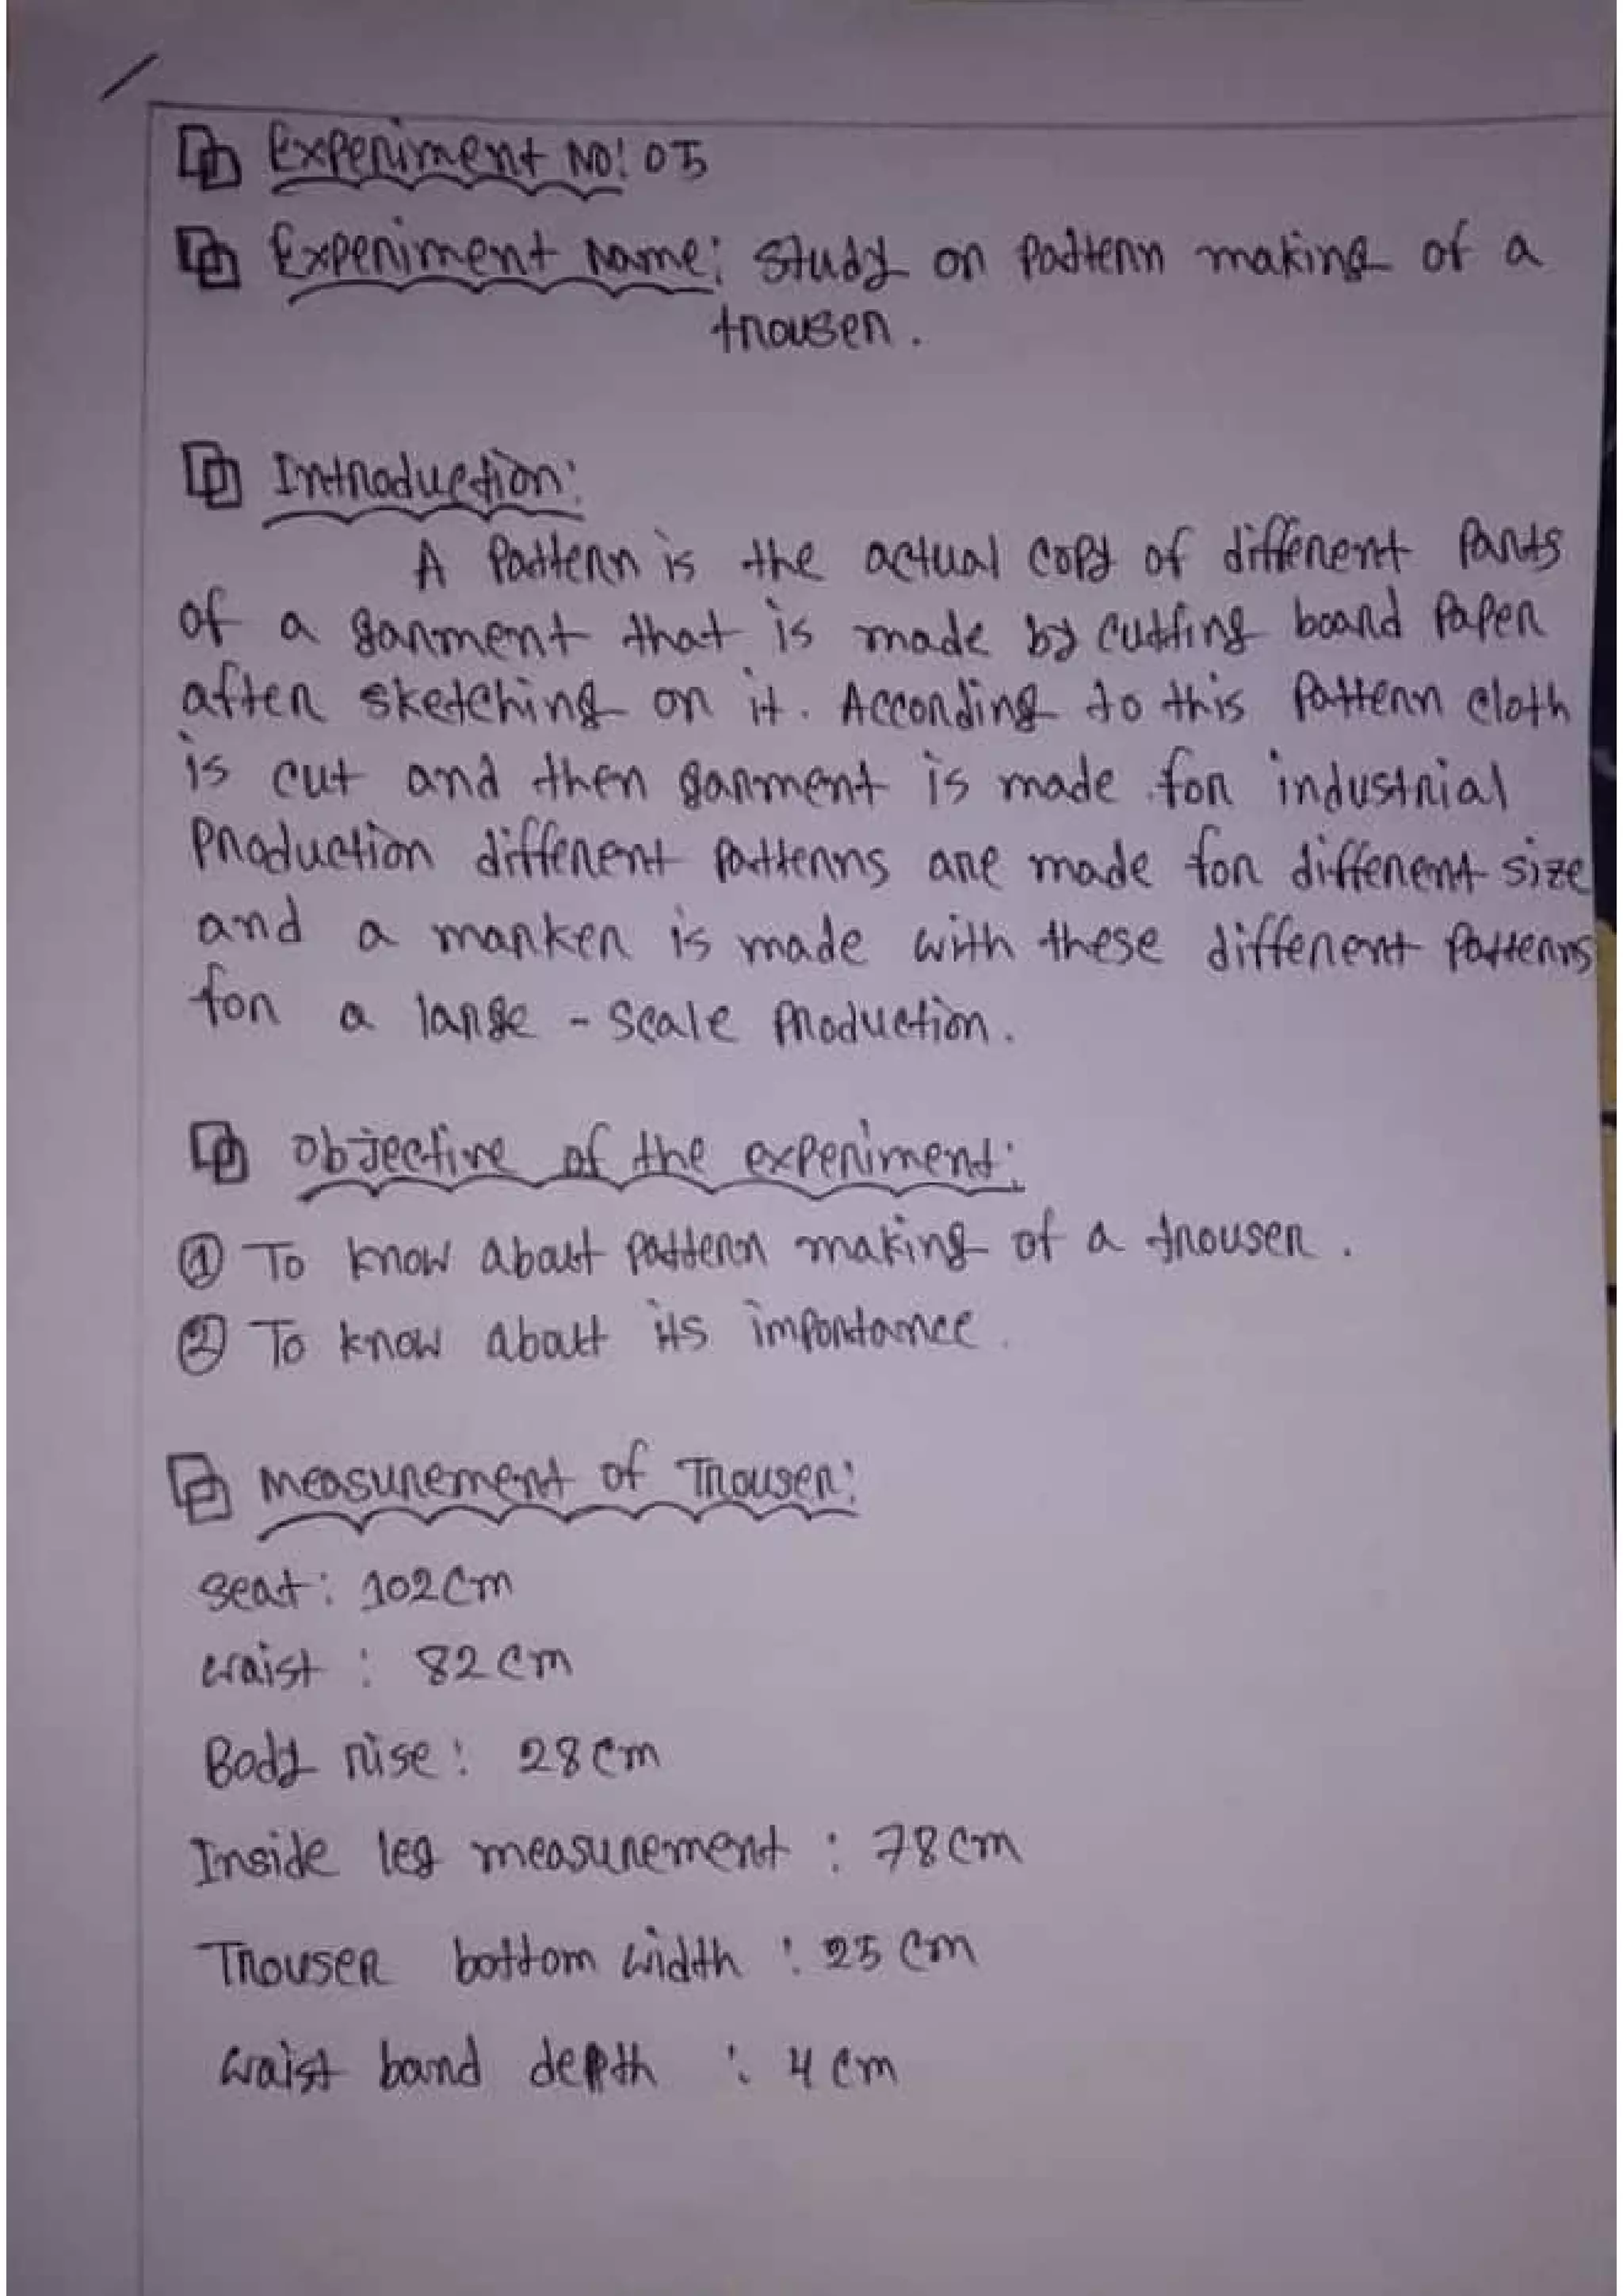 Experiment No: 05
Experiment Name: Study on Pattern making of a
trouser.
Introduction:
A Pattern is the actual copy of different Parts
of a garment that is made by cutting board Paper
after sketching on it. According to this Pattern cloth
is cut and then garment is made for industrial
Production different Patterns are made for different size
and a marker is made with these different Patterns
for a large - scale Production.
Objective of the experiment:
① To know about Pattern making of a trouser.
② To know about its importance.
Measurement of Trouser:
Seat: 102 cm
Waist : 82 cm
Body rise: 28 cm
Inside leg measurement : 78 cm
Trouser bottom width : 25 cm
Waist band depth : 4 cm